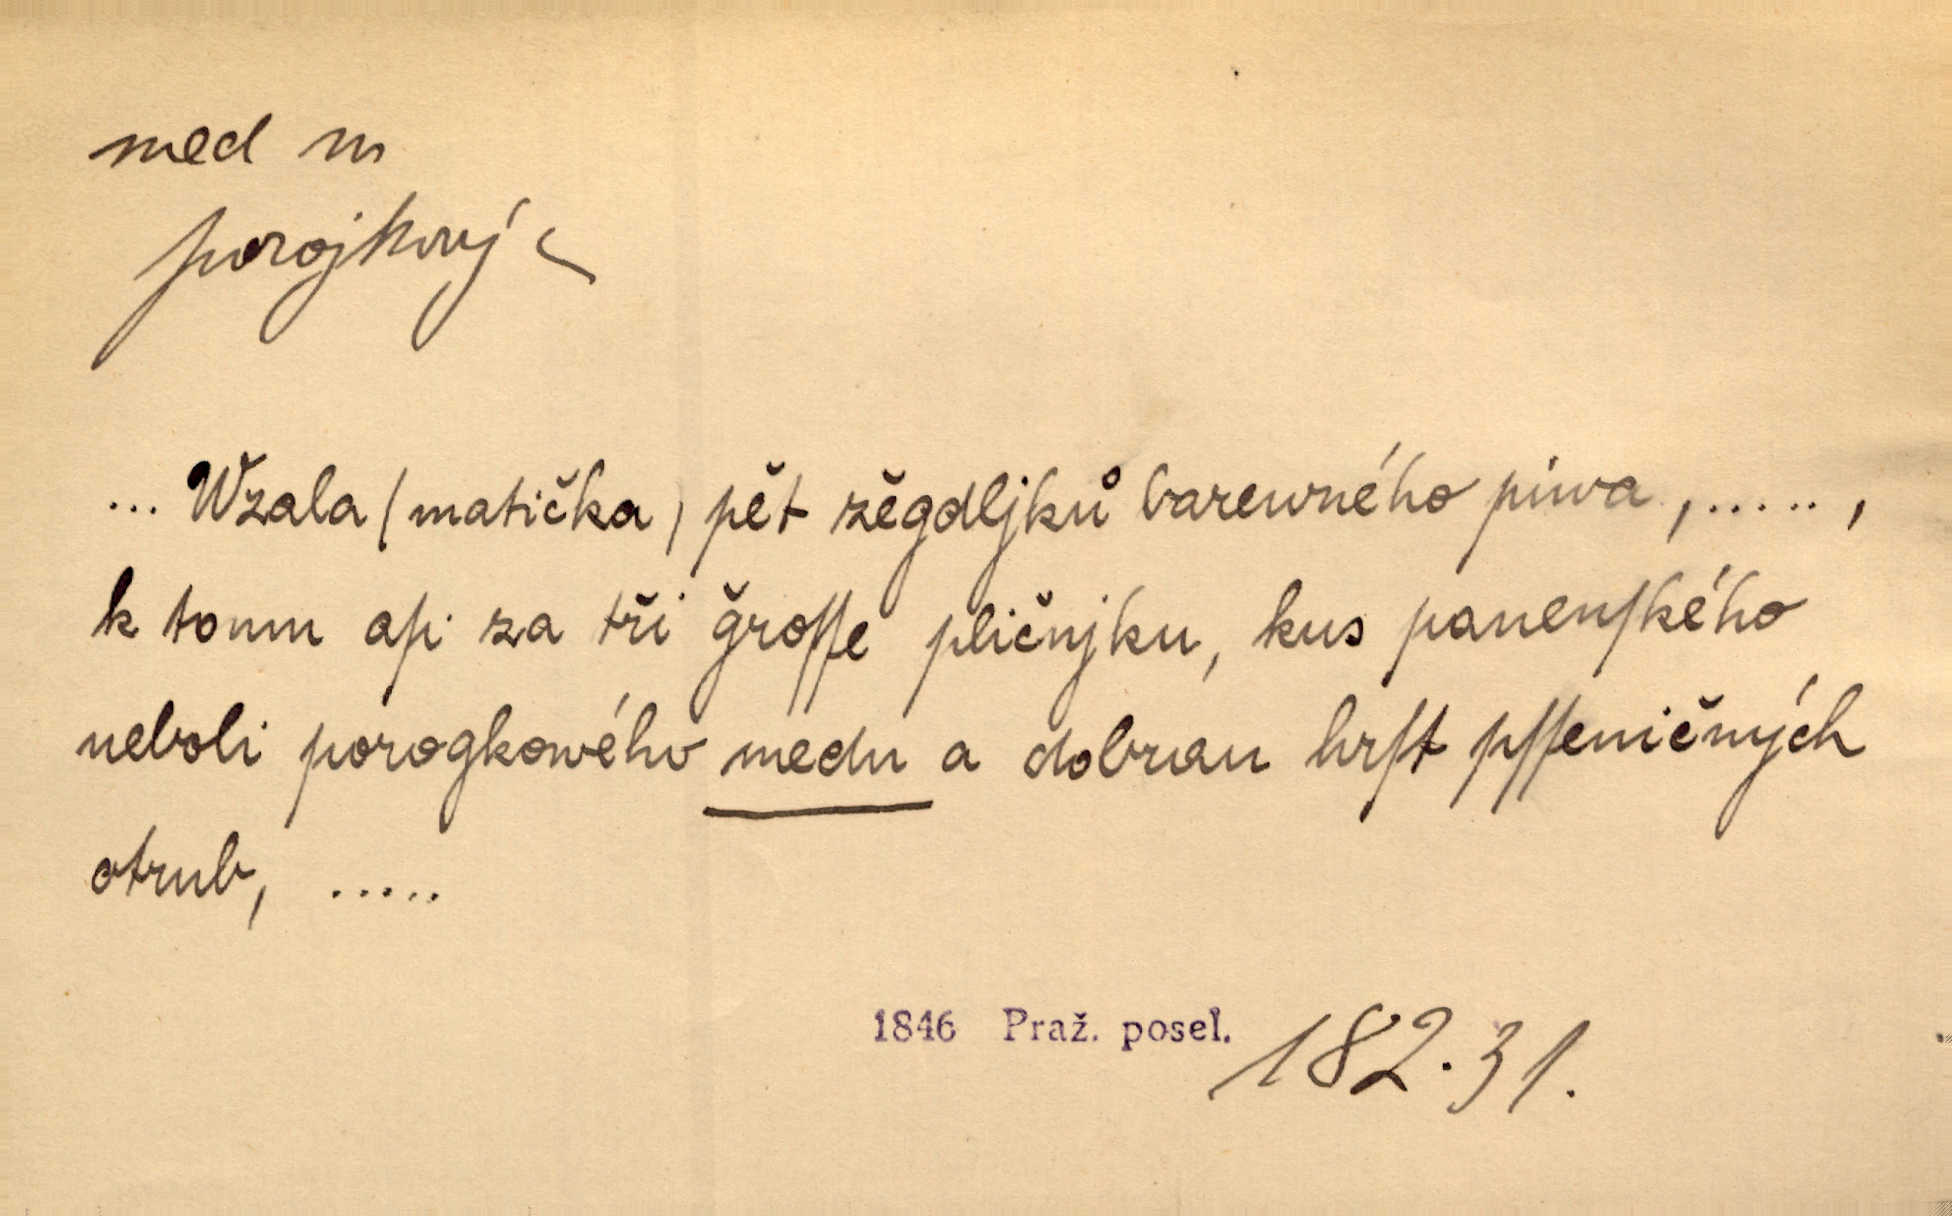 med m
porojkový
... Wzala (matička) pět zěgdljků barewného piwa, ..... ,
k tomu aſi za tři ğroſſe pličnjku, kus panenſkého
neboli porogkowého medu a dobrau hrſt pſſeničných
otrub, .....
1846 Praž. posel. 182.31.